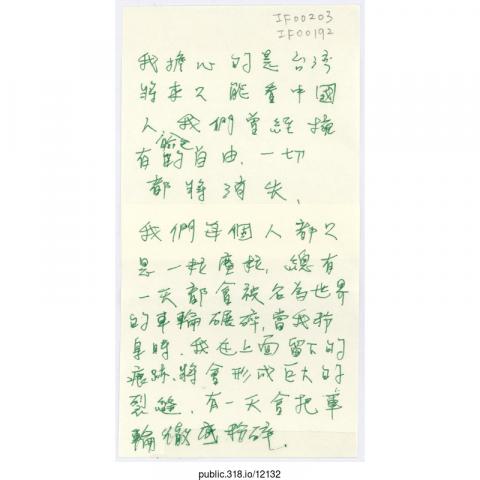 IF00203
IF00192
我擔心的是台灣
將來只能看中國
人,我們曾經擁
有的自由.一切
都將消失、
我們每個人都只
是一粒塵粒,總有
一天都會被名為世界
的車輪碾碎,當我粉
身時.我在上面留下的
痕跡、將會形成巨大的
裂縫、有一天會把車
輪徹底粉碎.
public.318.io/12132